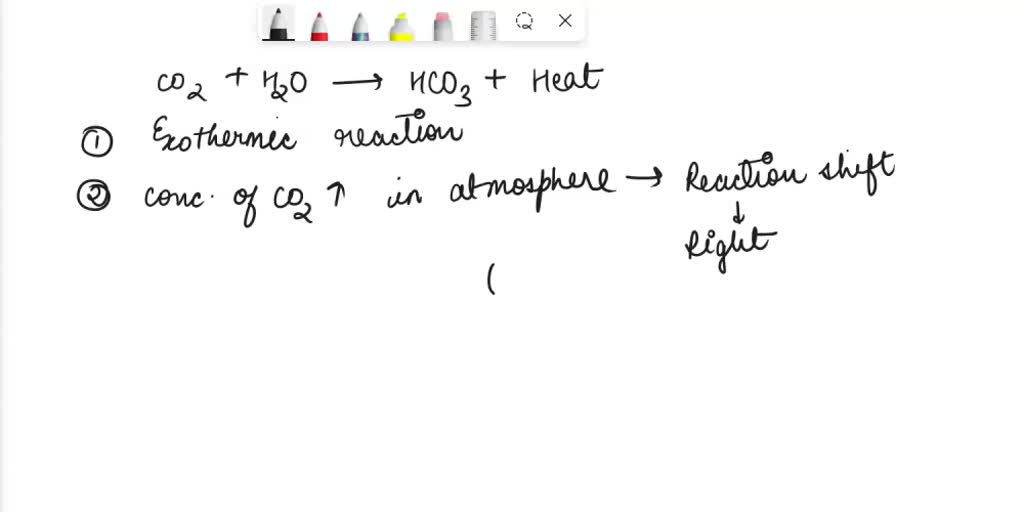 CO2 + H2O → HCO3 + Heat
① Exothermic reaction
② conc. of CO2 ↑ in atmosphere → Reaction shift
↓
Right
(